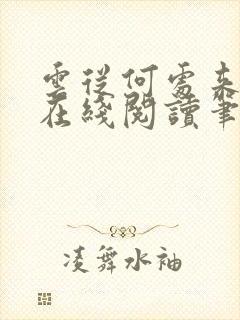 雲從何處來
在綫閱讀筆
凌舞水袖